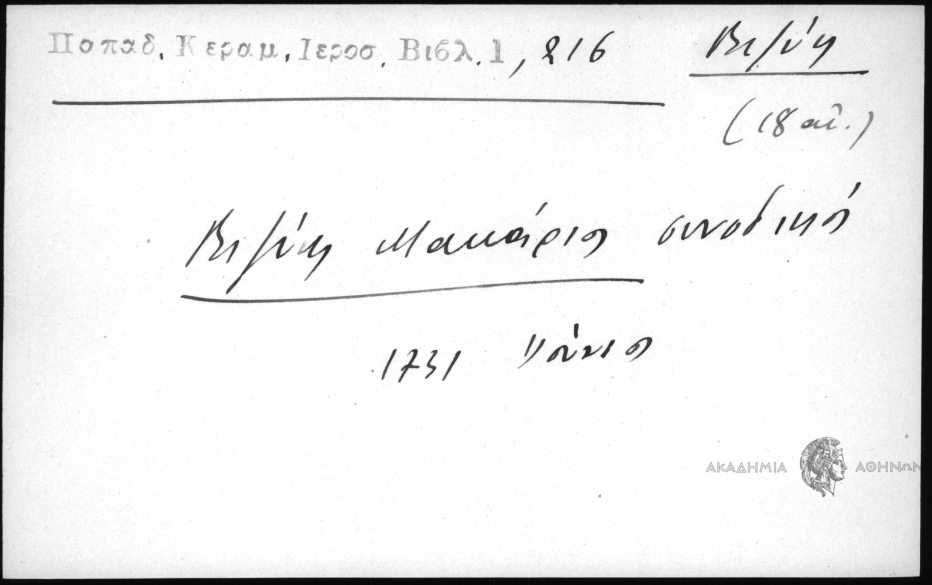 Παπαδ. Κεραμ. Ιεροσ. Βιβλ. 1, 216 Βιζύη
(18 αἰ.)
Βιζύης Μακάριος συνοδικός
1731 Ἰούνιος
ΑΚΑΔΗΜΙΑ ΑΘΗΝΩΝ